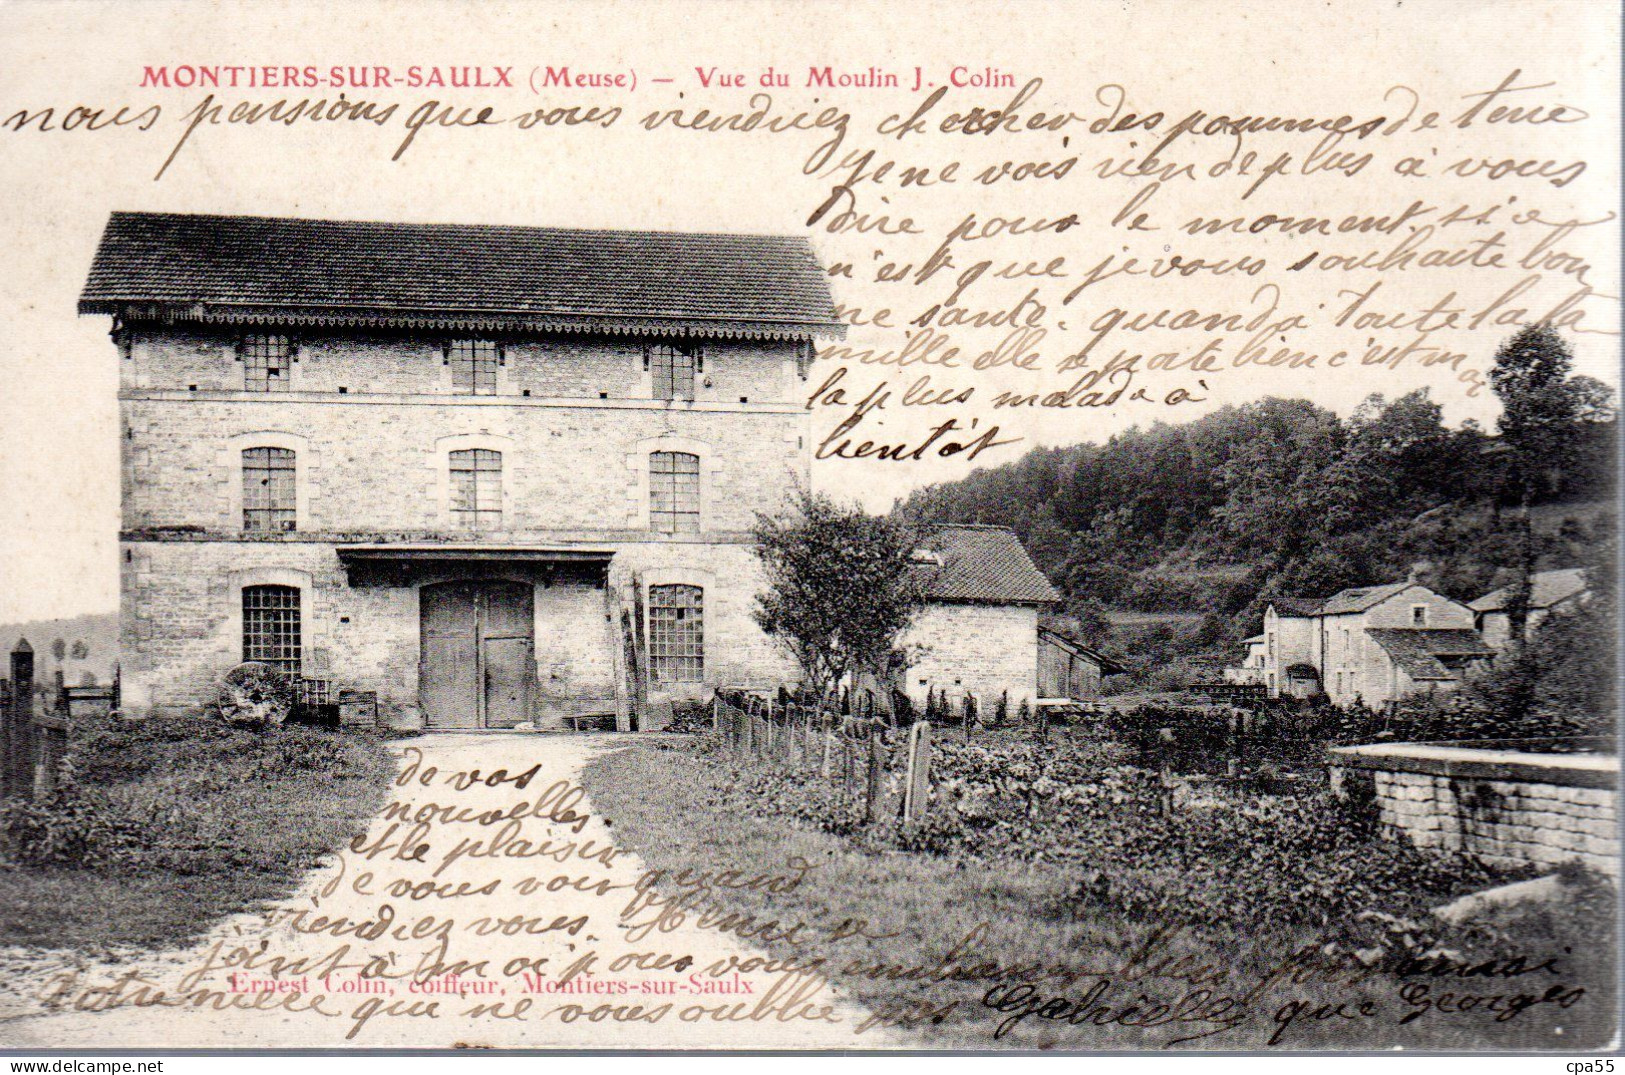 MONTIERS-SUR-SAULX (Meuse) — Vue du Moulin J. Colin
nous pensions que vous viendriez chercher des pommes de terre
Je ne vois rien de plus à vous
dire pour le moment si ce
n'est que je vous souhaite bon
ne santé. quand à toute la fa
mille elle se porte bien c'est moi
la plus malade à
bientôt
de vos
nouvelles
et le plaisir
de vous voir quand
viendrez vous. Henri se
joint à moi pour vous embrasser bien fort ainsi
Ernest Colin, coiffeur, Montiers-sur-Saulx
Votre nièce qui ne vous oublie pas Gabrielle que Georges
cpa55